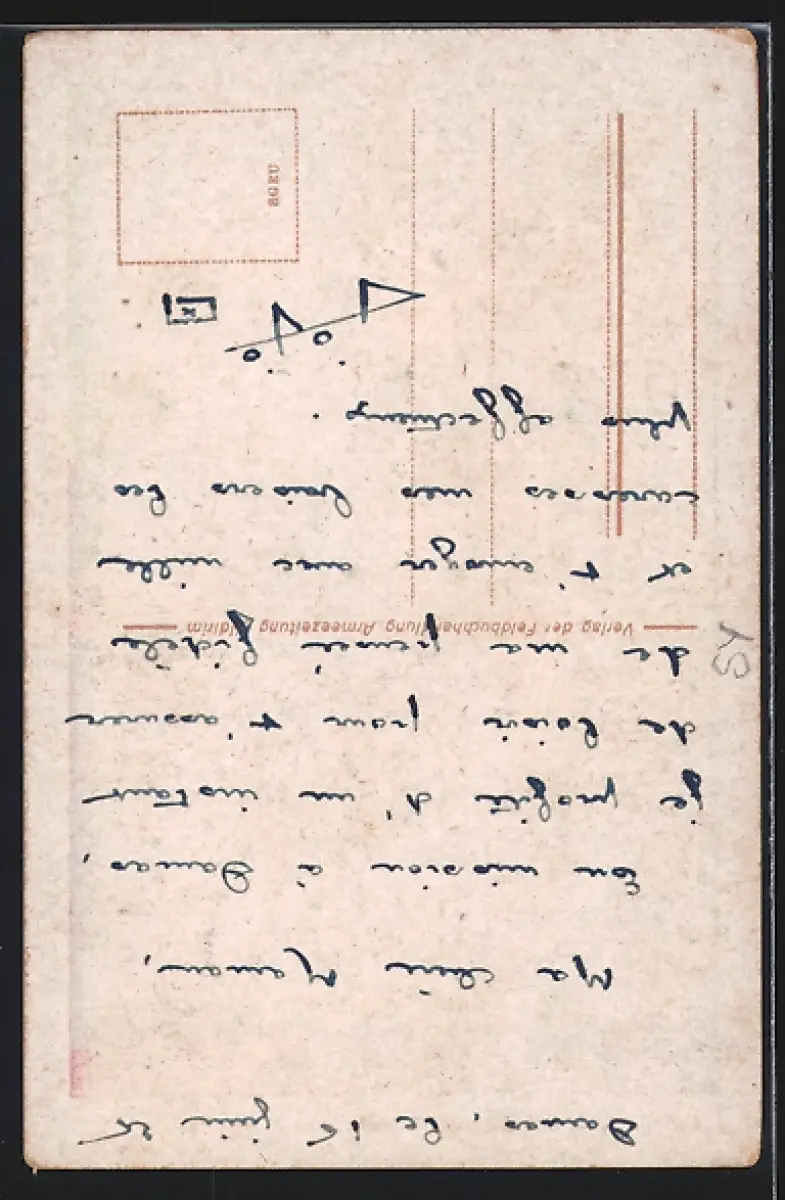 Damas, le 15 juin 25
Ma chère Maman,
En mission à Damas,
je profite d'un instant
de loisir pour t'assurer
de ma pensée fidèle
et t'envoyer avec mille
caresses mes baisers les
plus affectueux.
Verlag der Feldbuchhandlung Armeezeitung Jildirim
SY